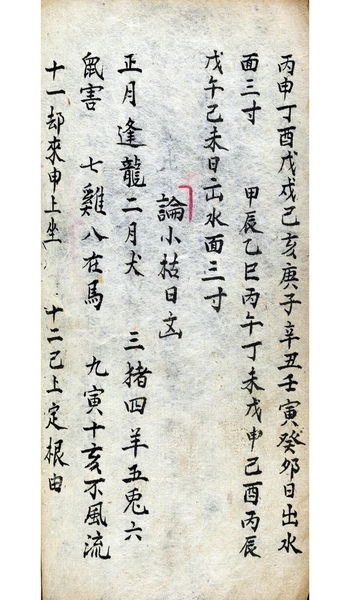 丙申丁酉戊戌己亥庚子辛丑壬寅癸卯日出水
面三寸 甲辰乙巳丙午丁未戊申己酉丙辰
戊午己未日出水面三寸
論小枯日玄
正月逢龍二月犬 三猪四羊五兎六
鼠害 七雞八在馬 九寅十亥不風流
十一却來申上坐 十二己上定根由